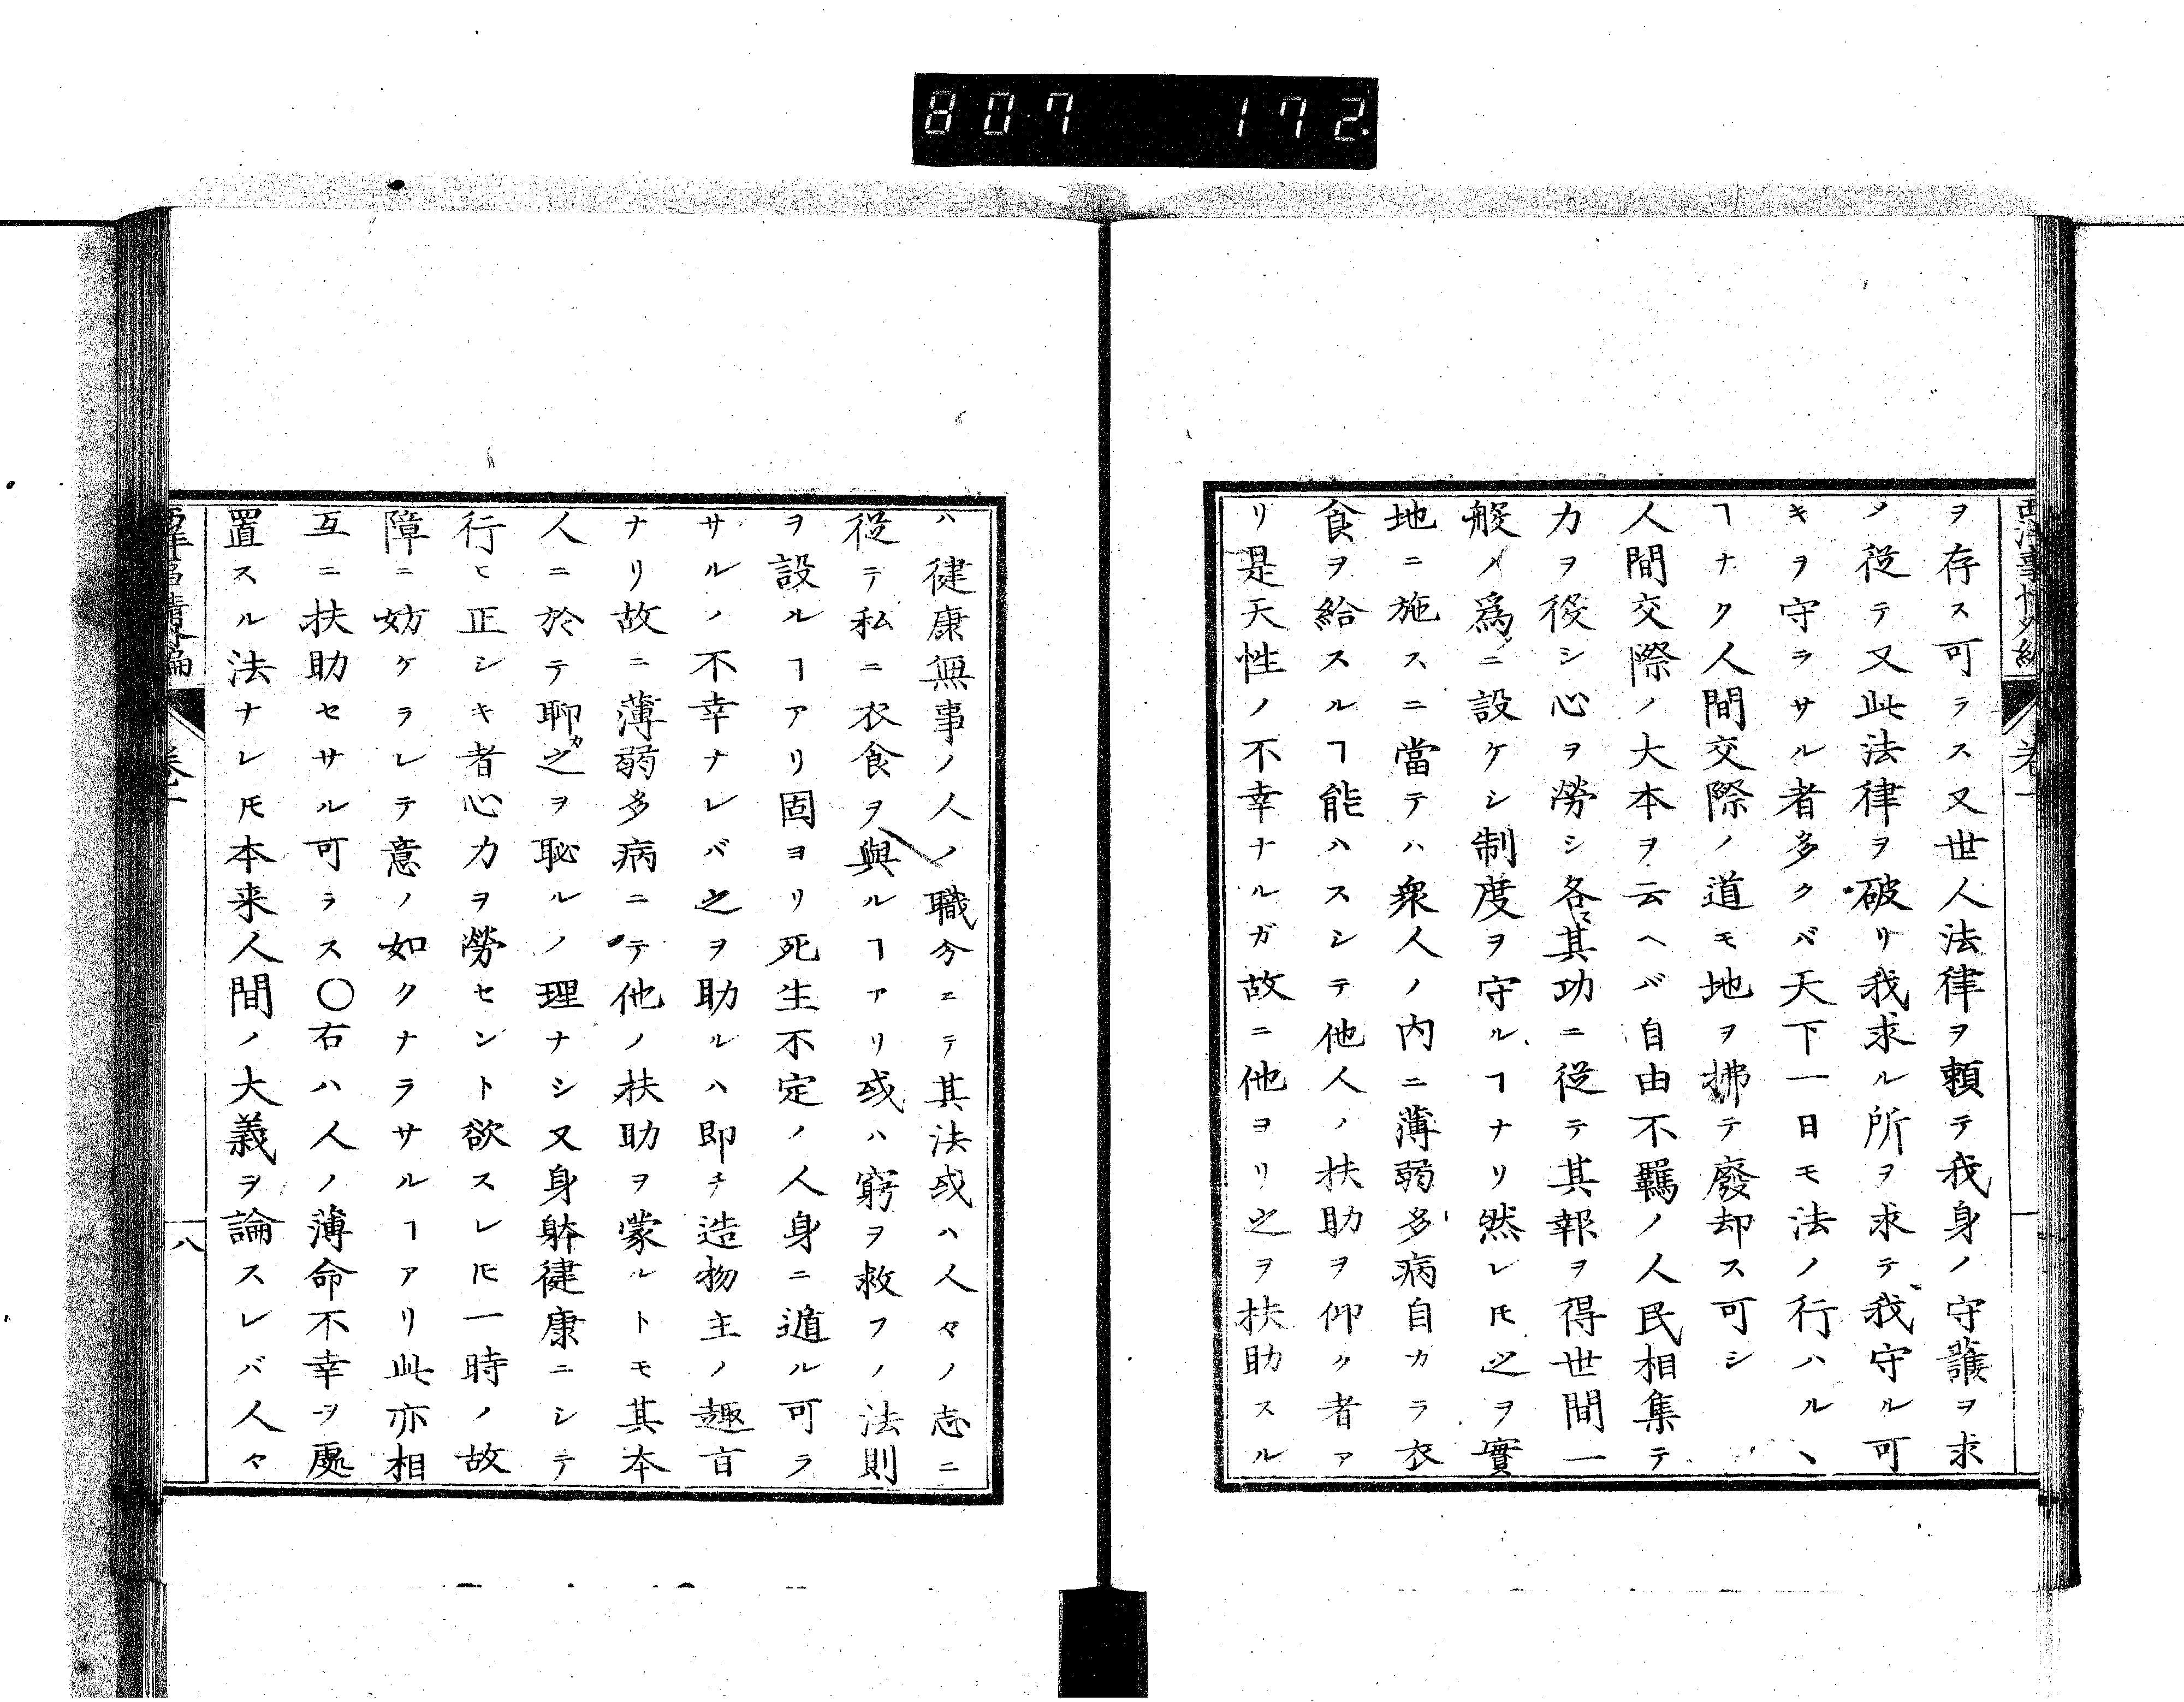 807 172
ヲ存ス可ラス又世人法律ヲ頼テ我身ノ守護ヲ求
メ從テ又此法律ヲ破リ我求ル所ヲ求テ我守ル可
キヲ守ラサル者多クバ天下一日モ法ノ行ハルヽ
ヿナク人間交際ノ道モ地ヲ拂テ廢却ス可シ
人間交際ノ大本ヲ云ヘバ自由不羈ノ人民相集テ
力ヲ役シ心ヲ勞シ各〻其功ニ從テ其報ヲ得世間一
般ノ爲ニ設ケシ制度ヲ守ルヿナリ然レ𪜈之ヲ實
地ニ施スニ當テハ衆人ノ内ニ薄弱多病自カラ衣
食ヲ給スルヿ能ハスシテ他人ノ扶助ヲ仰ク者ア
リ是天性ノ不幸ナルガ故ニ他ヨリ之ヲ扶助スル
ハ健康無事ノ人ノ職分ニテ其法或ハ人々ノ志ニ
從テ私ニ衣食ヲ與ルヿアリ或ハ窮ヲ救フノ法則
ヲ設ルヿアリ固ヨリ死生不定ノ人身ニ遁ル可ラ
サルノ不幸ナレバ之ヲ助ルハ即チ造物主ノ趣旨
ナリ故ニ薄弱多病ニテ他ノ扶助ヲ蒙ルトモ其本
人ニ於テ聊カ之ヲ恥ルノ理ナシ又身躰健康ニシテ
行ヒ正シキ者心力ヲ勞セント欲スレ𪜈一時ノ故
障ニ妨ケラレテ意ノ如クナラサルヿアリ此亦相
互ニ扶助セサル可ラス○右ハ人ノ薄命不幸ヲ處
置スル法ナレ𪜈本来人間ノ大義ヲ論スレバ人々
八